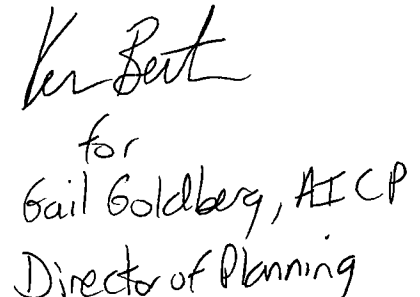 for
Gail Goldberg, AICP
Director of Planning